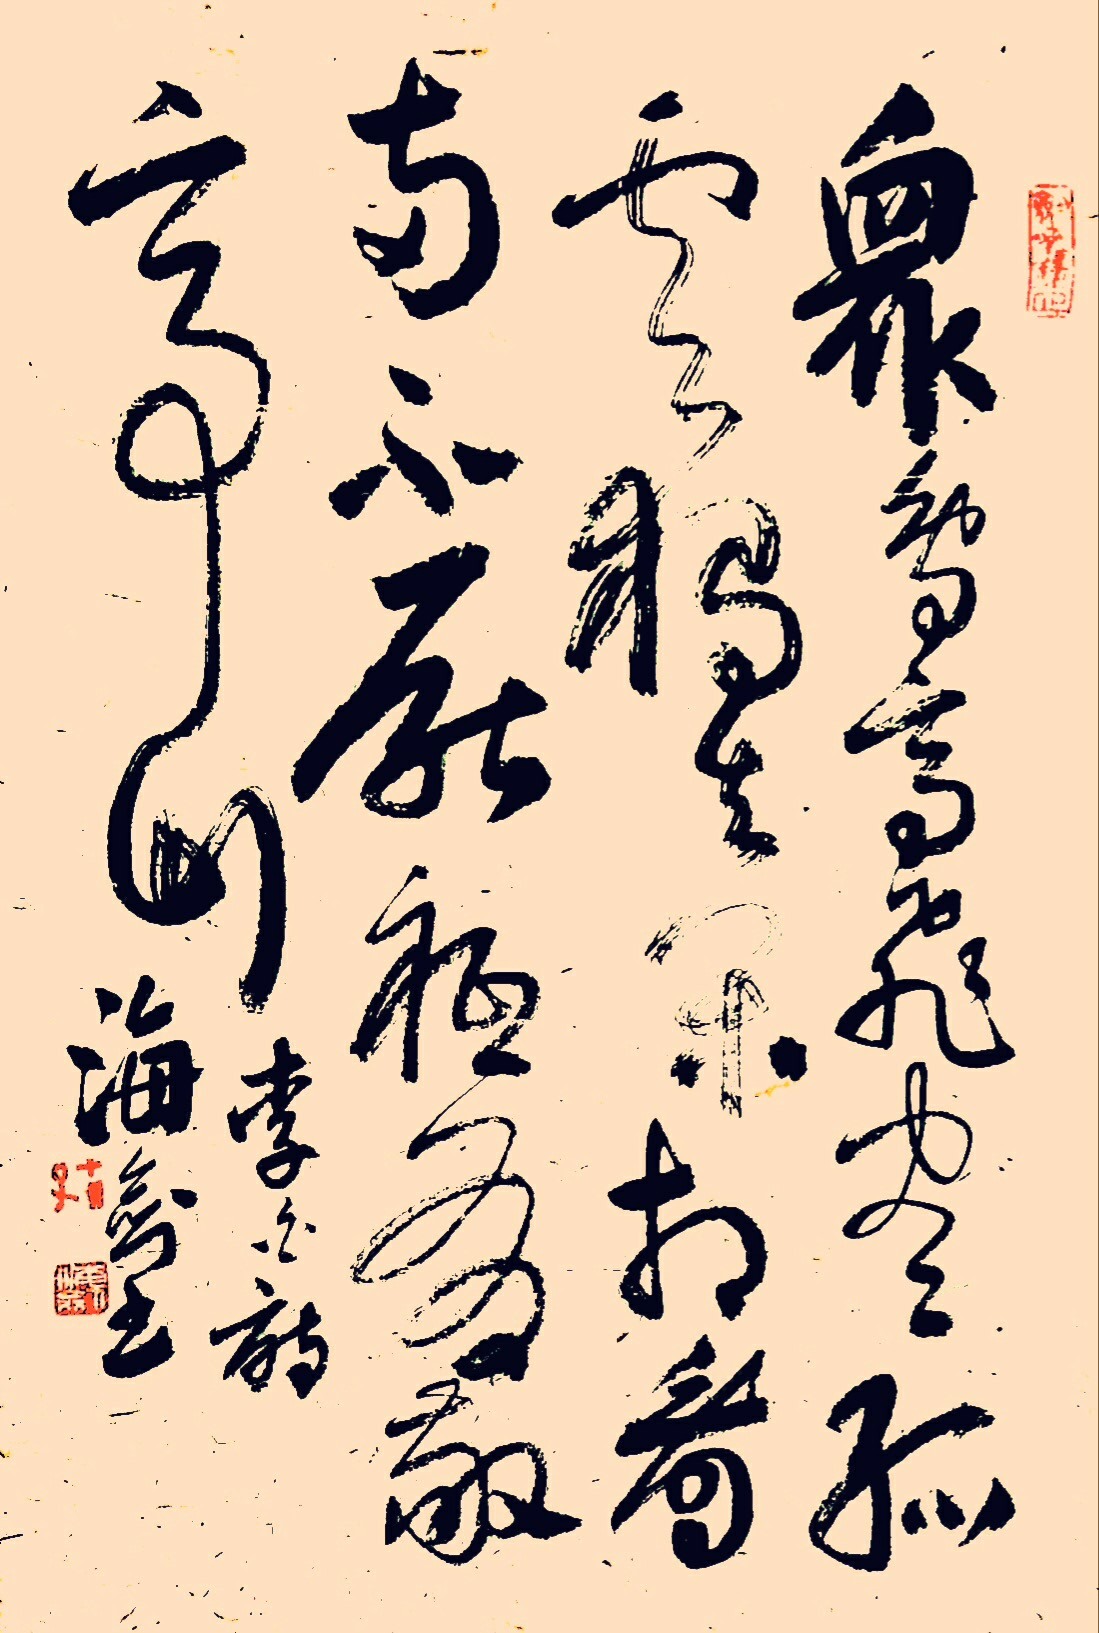 眾鳥高飛盡孤
雲獨去閑相看
兩不厭祗有敬
亭山
李白詩
海劍書